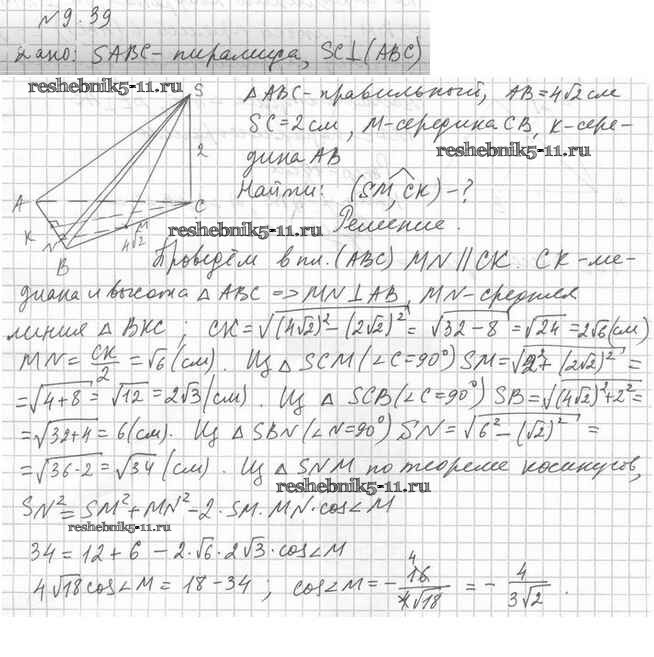 № 9.39
Дано: SABC- пирамида, SC⊥(ABC)
reshebnik5-11.ru
△ABC-правильный, AB=4√2 см
SC=2см, M-середина CB, K-сере-
reshebnik5-11.ru
дина AB
Найти: (SM, CK) - ?
reshebnik5-11.ru
Решение.
S
2
A
C
K
N
M
B
4√2
Проведём в пл. (ABC) MN || CK. CK-ме-
диана и высота △ABC => MN⊥AB, MN-средняя
линия △BKC; CK=√((4√2)²-(2√2)²)=√(32-8)=√24=2√6(см)
MN=CK/2=√6(см). Из △SCM(∠C=90°) SM=√(2²+(2√2)²)=
=√(4+8)=√12=2√3(см). Из △SCB(∠C=90°) SB=√((4√2)²+2²)=
=√(32+4)=6(см). Из △SBN(∠N=90°) SN=√(6²-(√2)²)=
=√(36-2)=√34(см). Из △SNM по теореме косинусов,
reshebnik5-11.ru
SN²=SM²+MN²-2·SM·MN·cos∠M
reshebnik5-11.ru
34=12+6-2·√6·2√3·cos∠M
4√18cos∠M=18-34; cos∠M=-16/4√18=-4/3√2.